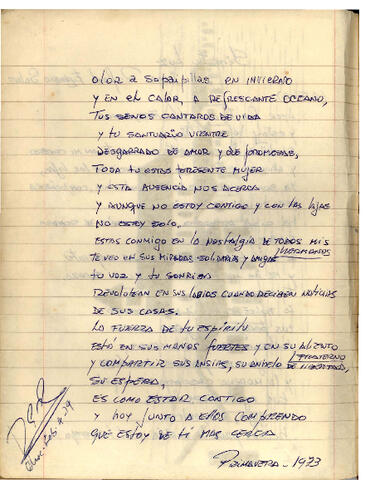 olor a sopaipillas en invierno
y en el calor, a refrescante oceano,
tus senos cantaros de vida
y tu santuario vientre
desgarrado de amor y de promesas,
toda tu estas presente mujer
y esta ausencia nos acerca
y aunque no estoy contigo y con las hijas
no estoy solo.
estas conmigo en la nostalgia de todos mis
hermanos
te veo en sus miradas solidarias y amigas
tu voz y tu sonrisa
revolotean en sus labios cuando reciben noticias
de sus casas.
la fuerza de tu espiritu
está en sus manos fuertes y en su aliento
fraterno
y compartir sus ansias, su anhelo de libertad,
su espera,
es como estar contigo
y hoy junto a ellos comprendo
que estoy de ti mas cerca
Primavera - 1973